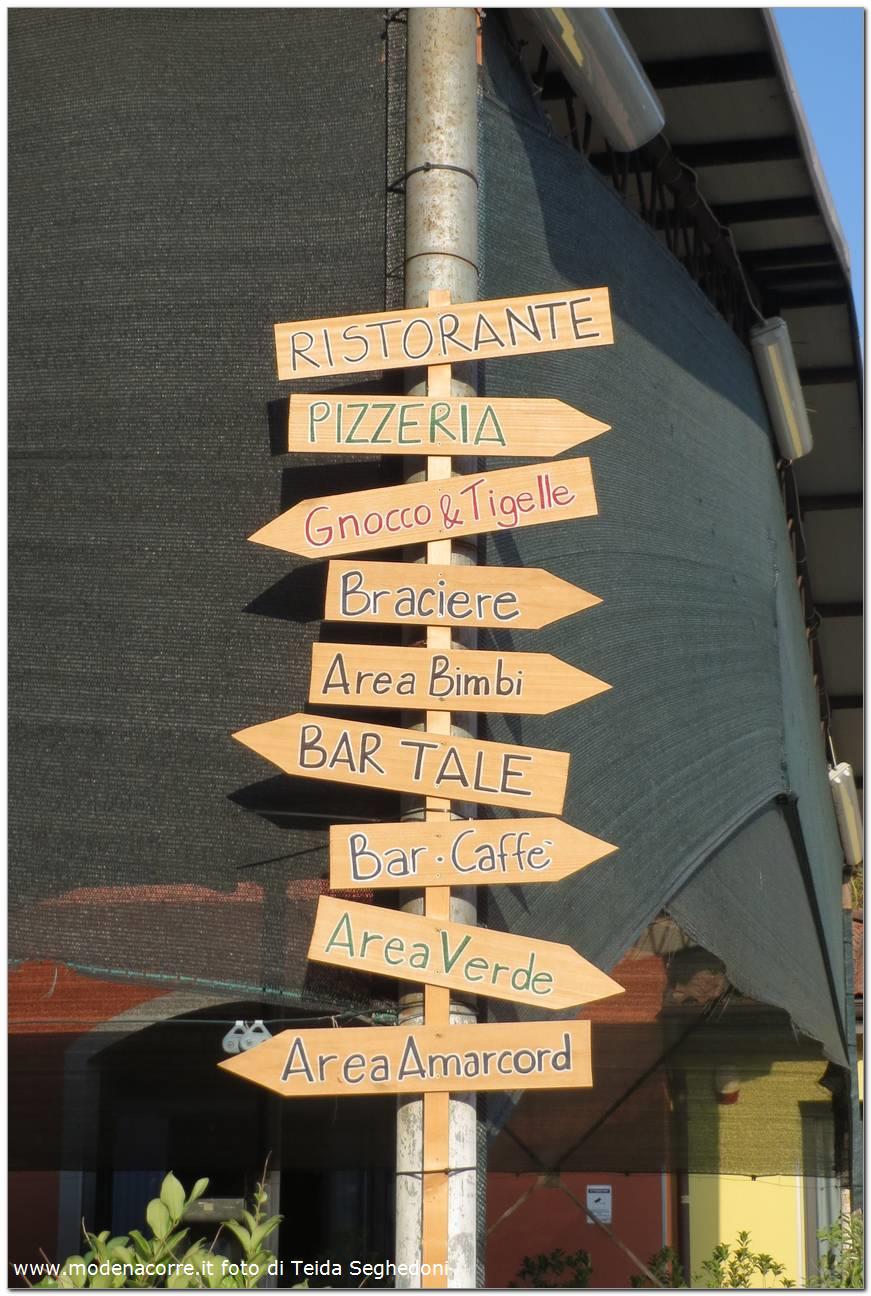 RISTORANTE
PIZZERIA
Gnocco & Tigelle
Braciere
Area Bimbi
BAR TALE
Bar · Caffè
Area Verde
Area Amarcord
www.modenacorre.it foto di Teida Seghedoni